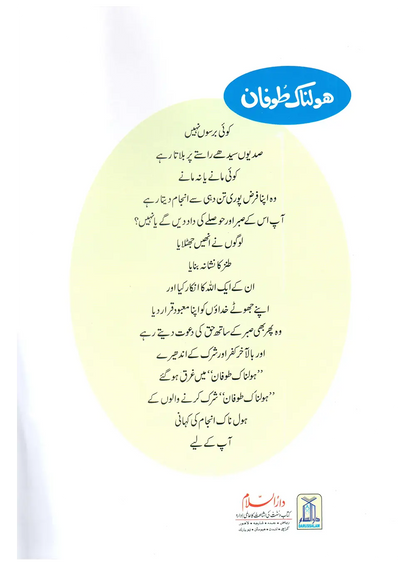 هولناک طُوفان
کوئی برسوں نہیں
صدیوں سیدھے راستے پر بلاتا رہے
کوئی مانے یا نہ مانے
وہ اپنا فرض پوری تن دہی سے انجام دیتا رہے
آپ اس کے صبر اور حوصلے کی داد دیں گے یا نہیں؟
لوگوں نے انھیں جھٹلایا
طنز کا نشانہ بنایا
ان کے ایک اللہ کا انکار کیا اور
اپنے جھوٹے خداؤں کو اپنا معبود قرار دیا
وہ پھر بھی صبر کے ساتھ حق کی دعوت دیتے رہے
اور بالآخر کفر اور شرک کے اندھیرے
’’ہولناک طوفان‘‘ میں غرق ہو گئے
’’ہولناک طوفان‘‘ شرک کرنے والوں کے
ہول ناک انجام کی کہانی
آپ کے لیے
دارُالسلام
کتاب و سنت کی اشاعت کا عالمی ادارہ
DARUSSALAM